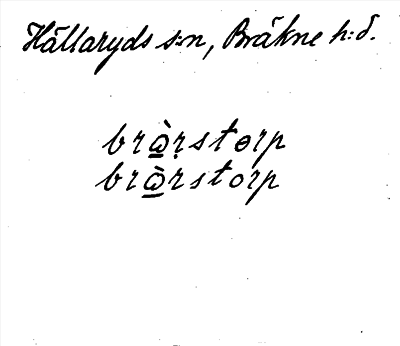 Hällaryds s:n, Bräkne h:d.
brà̱ṛstɵrp
brà̱rstorp